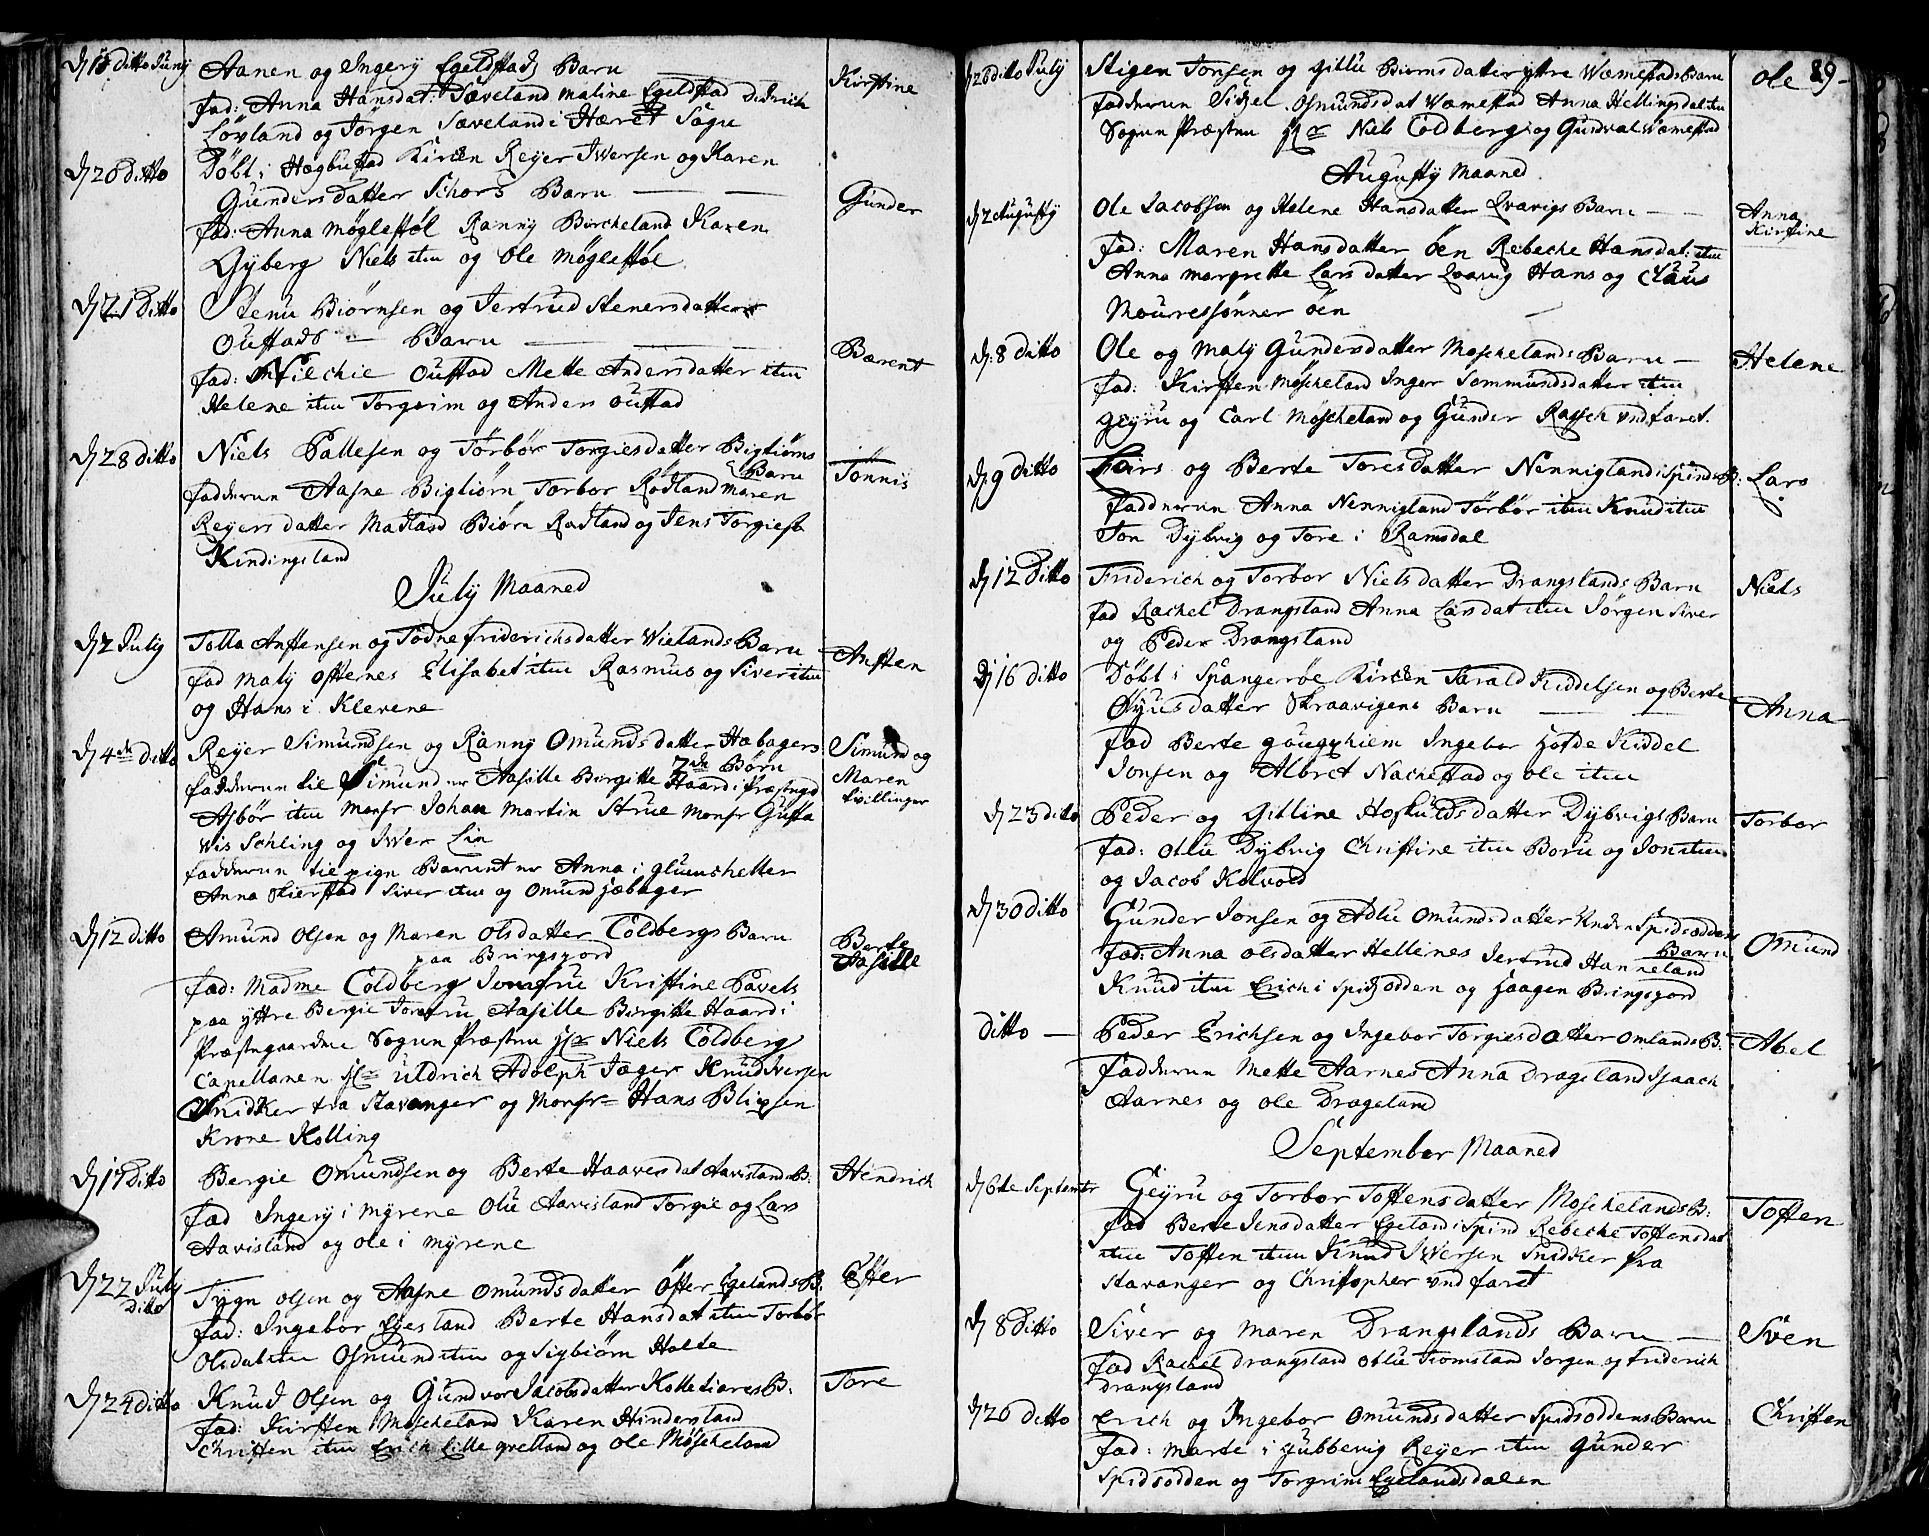 d 15 ditto Juny Aanen og Ingerÿ Egeldstads Barn Kirstine
fad: Anna Hansdat: Sæveland maline Egeldstad Didrich
Lövland og Jörgen Sæveland i Hæret Sogn
d 20 ditto Döbt i Hægbustad Kirken Reÿer Iwersen og Karen
Gundersdatter Schors Barn Gunder
fad: Anna Möglestöl Rannÿ Bircheland Karen
Gÿberg Niels iten og Ole Möglestöl
d 21 ditto Stenu Biörnsen og Jertrud Stenersdatter
Oustads Barn Bærent
fad: Wilchie Oustad Mette Andersdatter iten
Helene iten Torgrim og Anders Oustad
d 28 ditto Niels Pallesen og Törbör Torgiesdatter Bigtiörns
Barn Tönnis
fadderun Aasne Bigtiörn Torbor Rödland Maren
Reÿersdatter Madland Biörn Rödland og Jens Torgiess
Kindingsland
Julÿ Maaned
d 2 Julÿ Tolla Anstensen og Tödne Friderichsdatter Wielands Barn Ansten
fad malÿ Osternes Elisabet iten Rasmus og Siver iten
og Hans i Klevene
d 4de ditto Reÿer Simundsen og Rannÿ Omundsdatter Habagers Simund og
2de Börn Maren
fadderun til Simund er Aasille Birgitte Haard i Præstegrd tvillinger
Asbör iten Monsr Johan Martin Strue Monsr Gusta
vis Schling og Iwer Lin
fadderun til pige Barnet er Anna i gluenshetter
Anna Skierstad Siver iten og Omund Jæbager
d 12 ditto Amund Olsen og Maren Olsdatter Coldbergs Barn Berte
paa Bringsgord Aasille
fad: Madme Coldberg Jomfru Kristine Pavels
paa ÿttre Bergie Jomfru Aasille Birgitte Haard i
Præstegaarden Sogne Præsten Hr Niels Coldberg
Capellanen Hr Uldrich Adolph Jæger Knud Iversen
Snidker fra Stavanger og Monsr Hans Blixsen
Krone Kolling
d 17 ditto Bergie Omundsen og Berte Haavesdat Aavislands B: Hendrich
fad Ingerÿ i Mÿrene Olu Aavisland Torgie og Lars
Aavisland og Ole i Mÿrene
d 22 Julÿ Tÿgn Olsen og Aasne Omundsdatter Öster Egelands B: Ester
ditto
fad: Ingebor Egesland Berte Hansdat iten Torbör
Olsdat iten Osmund iten og Sigbiörn Holte
d 24 ditto Knud Olsen og Gundvor Jacobsdatter Kolletiores B: Tore
fad: Kirsten Moscheland Karen Hindersland
Christen iten Erich Lille gretland og Ole Möscheland
d 26 ditto Julÿ Stigen Jonsen og Gillu Biornsdatter ÿttre Wæmestads Barn Ole 89
fadderun Sidsel Osmundsdat Wæmestad Anna Hellingsdat iten
Sogne Præsten Hr Niels Coldberg og Gundval Wæmestad
Augustÿ Maaned
d 2 Augustÿ Ole Jacobsen og Helene Hansdatter Qvavigs Barn Anna
Kirstine
fad: Maren Hansdatter öen Rebecke Hansdat: iten
Anna Margrette Larsdatter Qvavig Hans og Claus
Mouressönner öen
d: 8 ditto Ole og Malÿ Gundersdatter Moschelands Barn Helene
fad: Kirsten Möscheland Inger Sommundsdatter iten
Geÿru og Carl Möscheland og Gunder Rasch und Faret.
d: 9 ditto Lars og Berte Toresdatter Nennigland i Spind B: Lars
Fadderun Anna Nennigland Törbör iten Knud iten
Jon Dÿbvig og Tore i Ramsdal
d 12 ditto Friderich og Torbor Nielsdatter Drangslands Barn Niels
fad Rachel Drangsland Anna Larsdat iten Jörgen Siver
og Peder Drangsland
d 16 ditto Döbt i Spangerøe Kirken Tarald Kiddelsen og Berte
Öÿusdatter Skraavigens Barn Anna
fad Berte gougghiem Ingebor Hofde Kiddel
Jonsen og Albret Nachestad og Ole iten
d 23 ditto Peder og Gitline Hoskuldsdatter Dÿbvigs Barn Torbor
fad: Ollu Dÿbvig Christine iten Boru og Jon iten
og Jacob Kolvold
d 30 ditto Gunder Jonsen og Adlu Omundsdatter Undre Spidsoddens
Barn Omund
fad: Anna Olsdatter Hellenes Jertrud Hanneland
Knud iten Erich i Spidsodden og Haagen Bringsgord
ditto — Peder Erichsen og Ingebor Torgiesdatter Omlands B: Abel
Fadderun Mette Aarnes Anna Drageland Isaach
Aarnes og Ole Drageland
September Maaned
d 6te September Geÿru og Torbor Toftensdatter Moschelands B: Toften
fad Berte Jensdatter Egeland i Spind Rebecke Toftensdat
iten Toften iten Knud Iwersen Snidker fra
Stavanger og Christopher und Faret
d 8 ditto Siver og Maren Drangslands Barn Sven
fad Rachel Drangsland Ollu Tromsland Jorgen og Friderich
Drangsland
d 20 ditto Erich og Ingebor Omundsdatter Spidsoddens Barn Christen
fad: Marte i Gubbevig Reÿer iten Gunder
Spidsodden og Torgrim Egelandsdalen